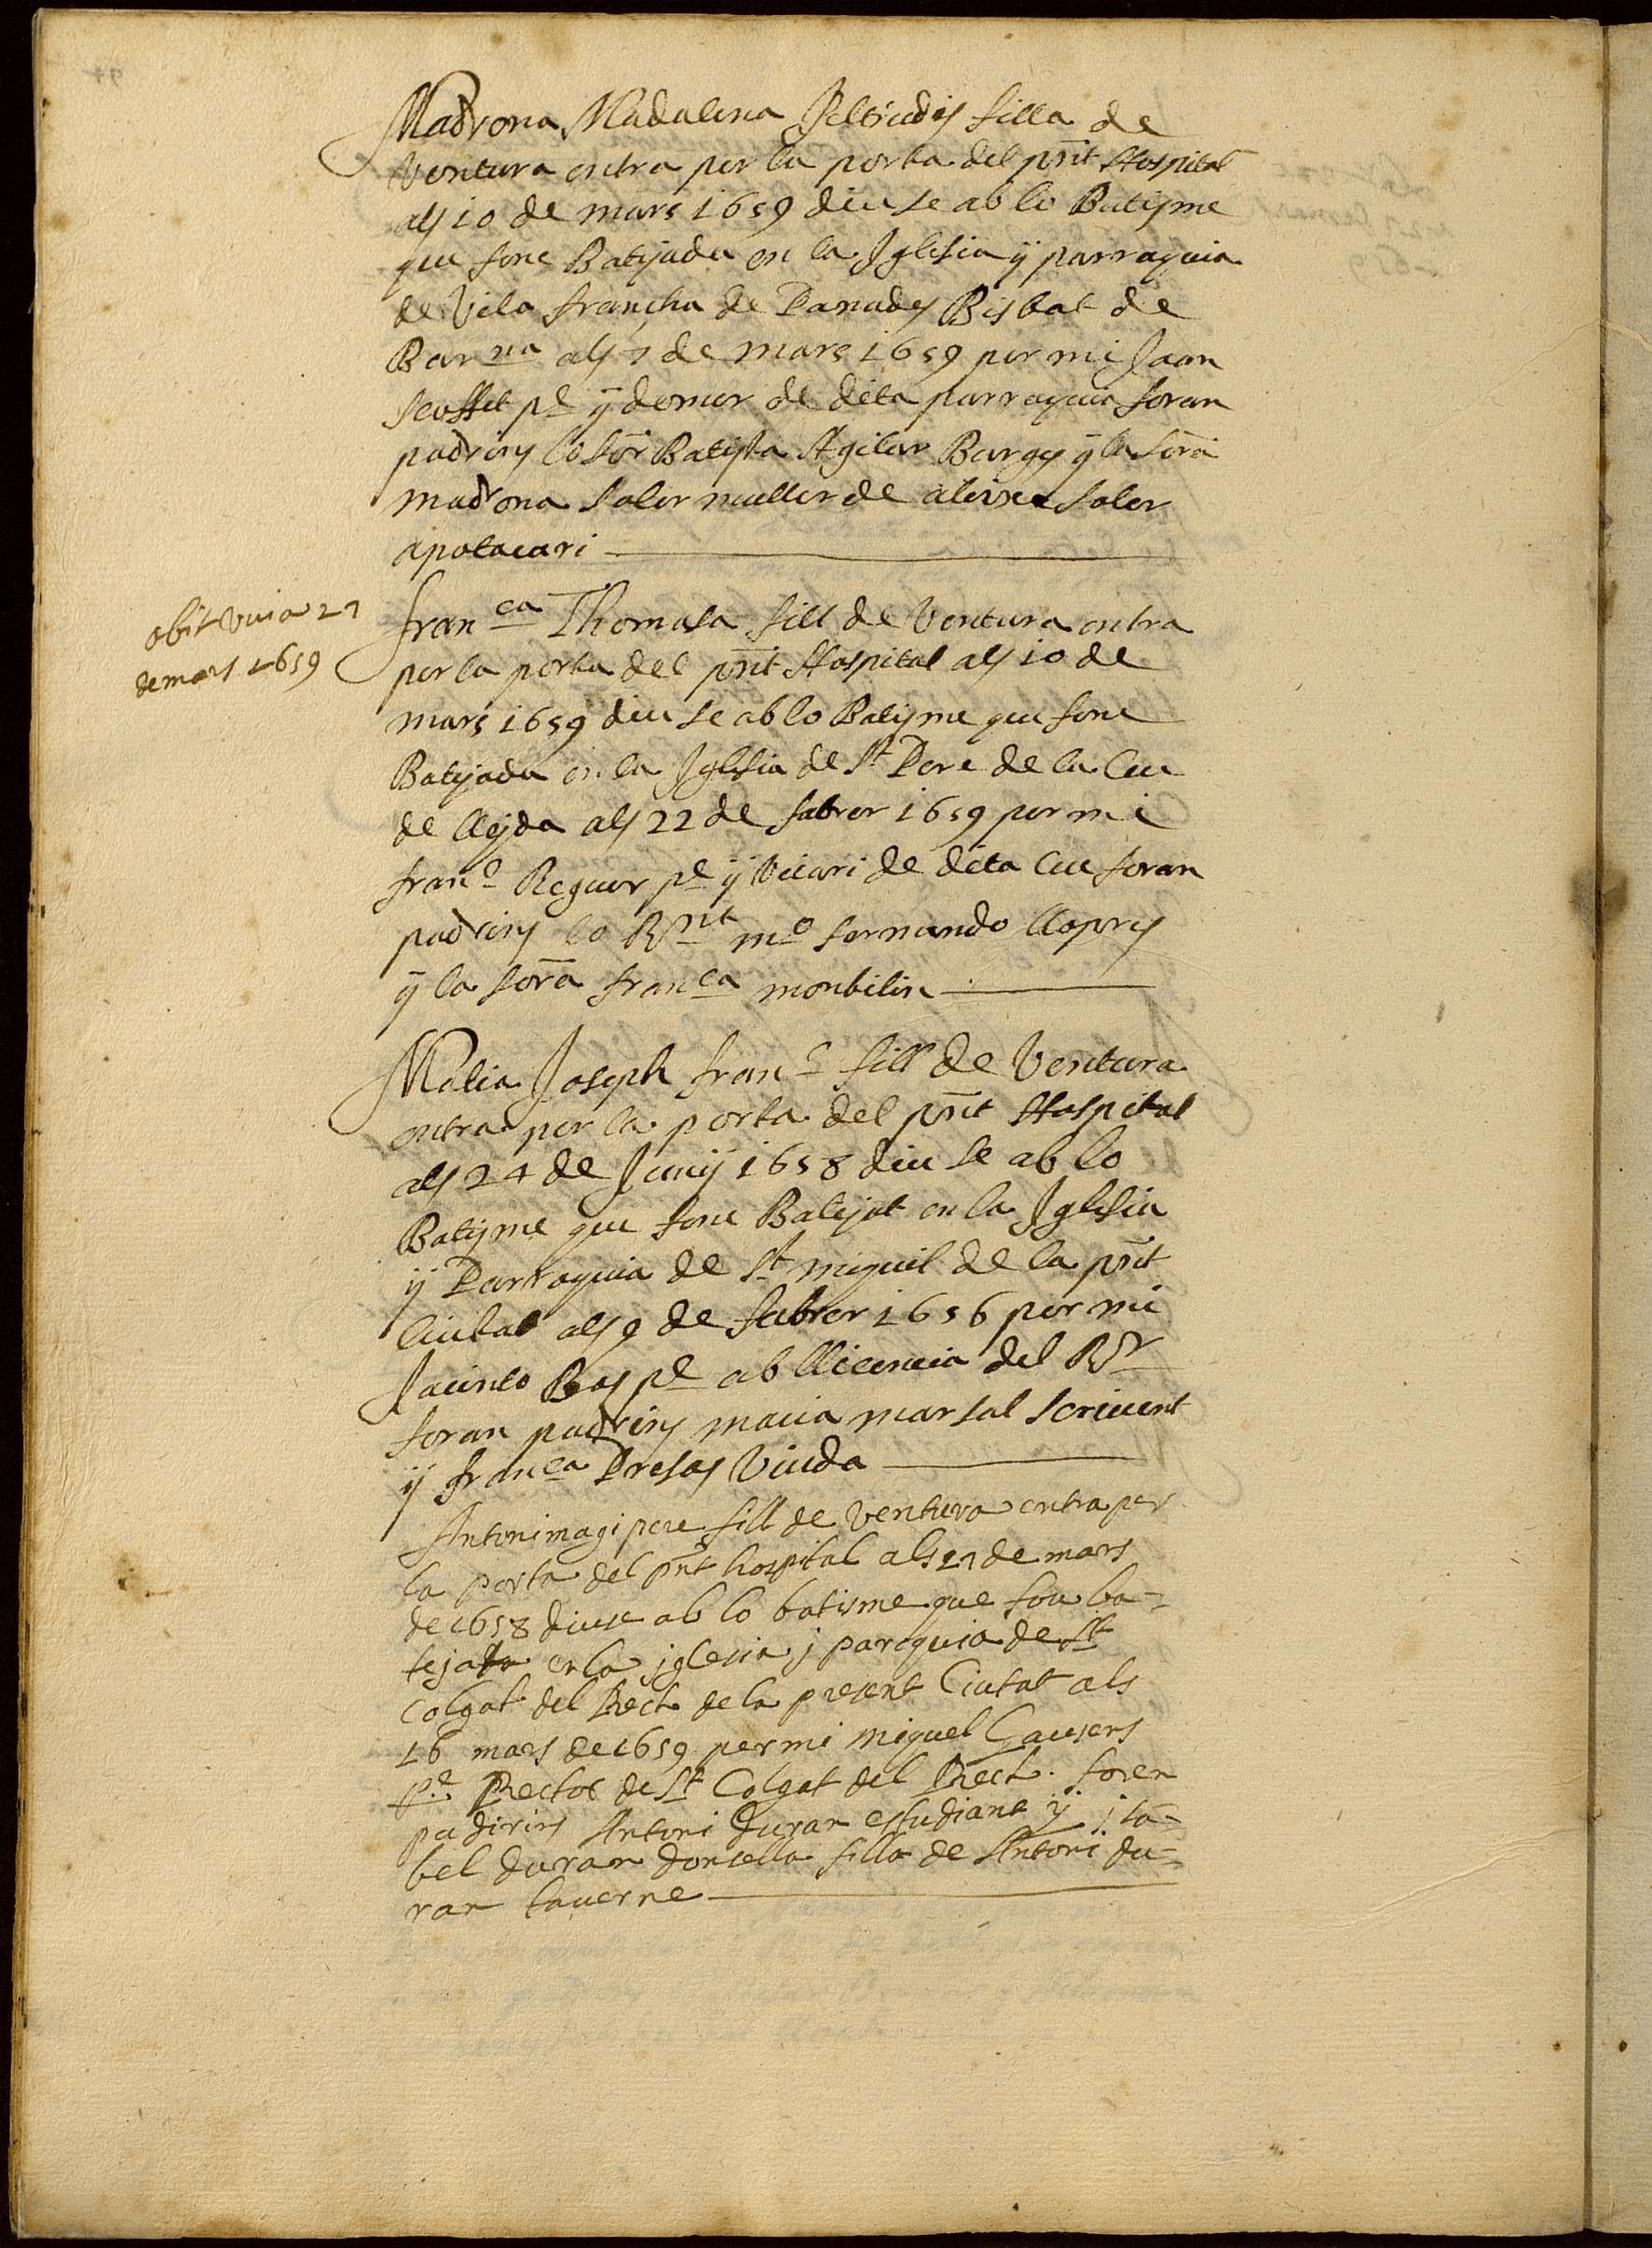 Madrona Madalena Jeltrudis filla de
Ventura entra per la porta del pnt Hospital
als 10 de mars 1659 diu se ab lo Batisme
que fonc Batejada en la Iglesia ÿ parraquia
de Vila francha de Panades Bisbat de
Barna als 7 de mars 1659 per mi Joan
pe ÿ domer de dita parraquia foran
padrins lo Sor Batista Agilar Burges ÿ la Sora
madrona Soler muller de Soler
apotacari
obit vuia 27
de mars 1659
franca Thomasa fill de Ventura entra
per la porta del pnt Hospital als 10 de
mars 1659 diu se ab lo Batisme que fonc
Batejada en la Iglesia de St Pere de la Ceu
de lleyda als 22 de fabrer 1659 per mi
franc Reguer pe ÿ Vicari de dita Ceu foran
padrins lo Rnt mo fernando llopres
ÿ la Sora franca monbilin
Matia Joseph franc fill de Ventura
entra per la porta del pnt Hospital
als 24 de Juny 1658 diu se ab lo
Batisme que fonc Batejat en la Iglesia
ÿ Parraquia de St miquil de la pnt
Ciutat als 9 de febrer 1656 per mi
Jacinto Bas pe ab llicencia del Rr
foran padrins macia marsal scrivent
ÿ franca Presas Viuda
Antoni magi pere fill de ventura entra per
la porta del pnt hospital als 27 de mars
de 1658 diuse ab lo batisme que fou ba-
tejata en la iglesia j paroquia de St
Colgat del Rech de la present Ciutat als
16 mars de 1659 per mi Miquel Gausens
pe Rector de St Colgat del Rech. foren
padirins Antoni duran estudiant ÿ isa-
bel duran donsella filla de Antoni du-
ran taverne